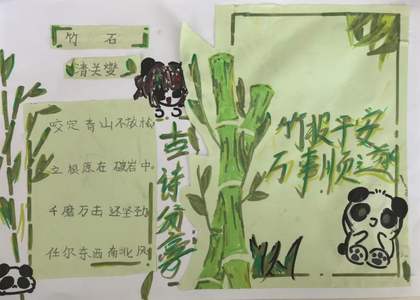 竹 石
清关燮
咬定青山不放松
立根原在破岩中
千磨万击还坚劲
任尔东西南北风
古诗分享
竹报平安
万事顺